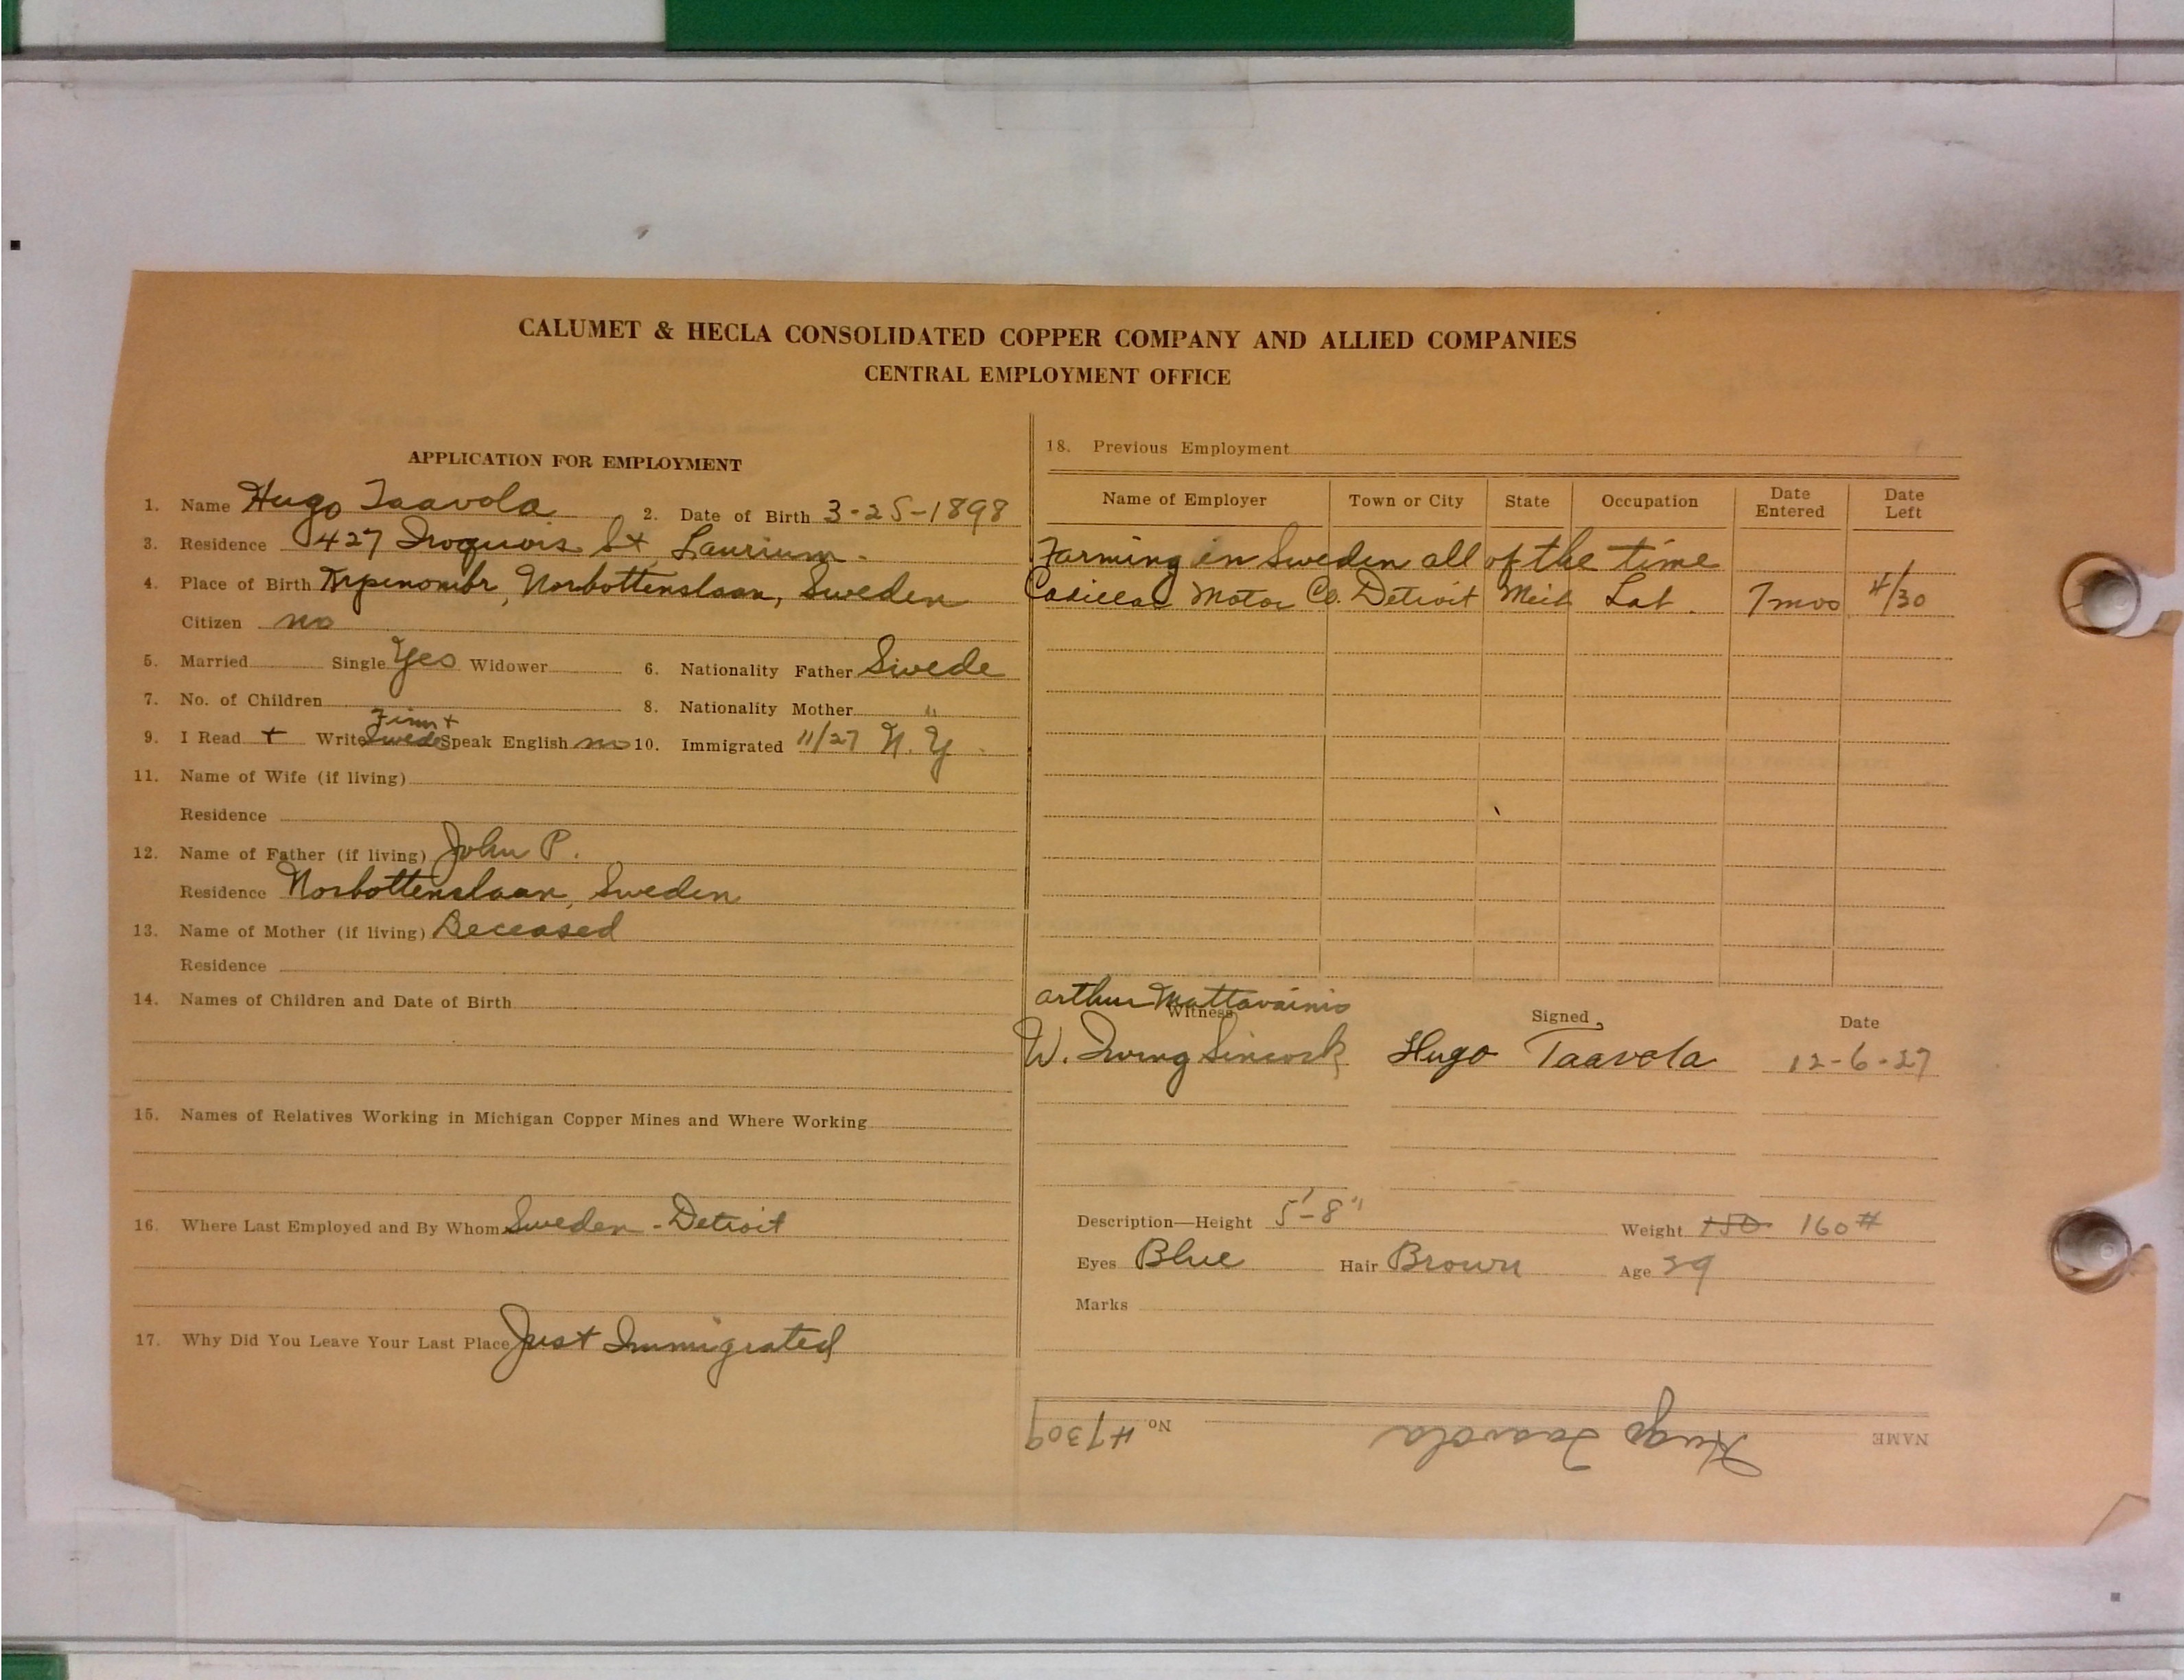 CALUMET & HECLA CONSOLIDATED COPPER COMPANY AND ALLIED COMPANIES
CENTRAL EMPLOYMENT OFFICE
APPLICATION FOR EMPLOYMENT
1. Name Hugo Taavola 2. Date of Birth 3-25-1898
3. Residence 427 Iroquois St Laurium.
4. Place of Birth Norbottenslaan, Sweden
Citizen no
5. Married Single Yes Widower 6. Nationality Father Swede
7. No. of Children 8. Nationality Mother "
Finn +
9. I Read + Write Swede Speak English no 10. Immigrated 11/27 N.Y.
11. Name of Wife (if living)
Residence
12. Name of Father (if living) John P.
Residence Norbottenslaan, Sweden
13. Name of Mother (if living) Deceased
Residence
14. Names of Children and Date of Birth
15. Names of Relatives Working in Michigan Copper Mines and Where Working
16. Where Last Employed and By Whom Sweden - Detroit
17. Why Did You Leave Your Last Place Just Immigrated
18. Previous Employment
Name of Employer Town or City State Occupation Date Entered Date Left
Farming in Sweden all of the time
Cadillac Motor Co. Detroit Mich Lab. 7 mos 4/30
Arthur Mattavainio
Witness Signed Date
W. Irving Sincock Hugo Taavola 12-6-27
Description—Height 5'-8" Weight 150 160#
Eyes Blue Hair Brown Age 29
Marks
NAME Hugo Taavola No #7309